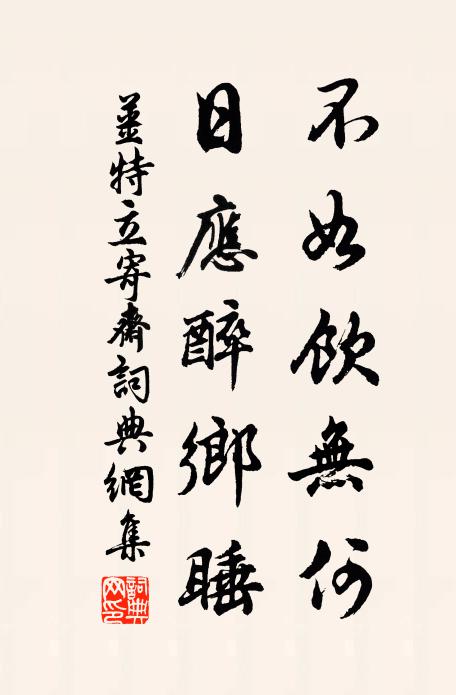 不如飲無何
日應醉鄉睡
姜特立寄齋詞典網集
詞典網印